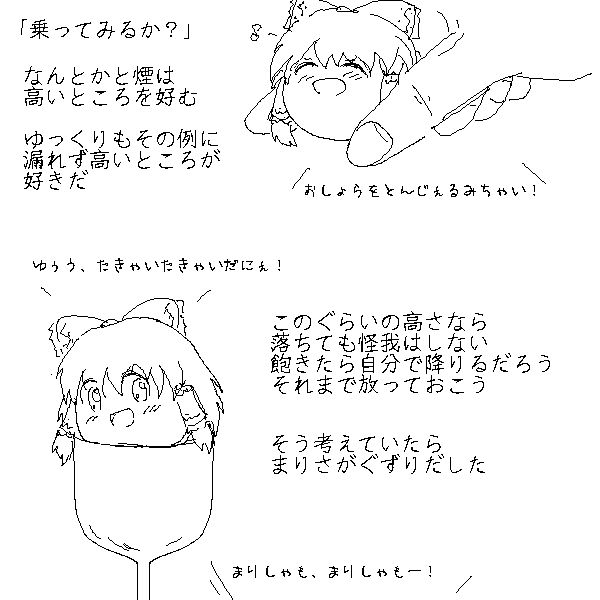 「乗ってみるか？」
なんとかと煙は
高いところを好む
ゆっくりもその例に
漏れず高いところが
好きだ
おしょらをとんじぇるみちゃい！
ゆぅぅ、たきゃいたきゃいだにぇ！
このぐらいの高さなら
落ちても怪我はしない
飽きたら自分で降りるだろう
それまで放っておこう
そう考えていたら
まりさがぐずりだした
まりしゃも、まりしゃもー！